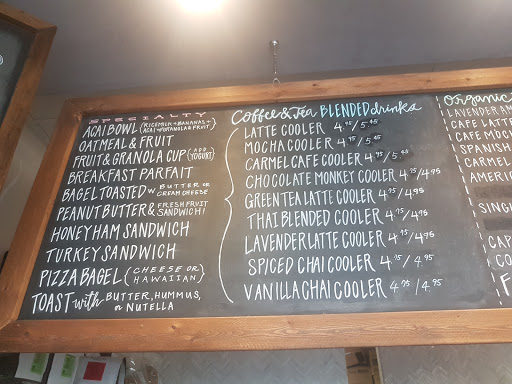 SPECIALTY
ACAI BOWL (RICEMILK + BANANAS + ACAI + GRANOLA & FRUIT)
OATMEAL & FRUIT
FRUIT & GRANOLA CUP (ADD YOGURT)
BREAKFAST PARFAIT
BAGEL TOASTED w/ BUTTER OR CREAM CHEESE
PEANUT BUTTER & FRESH FRUIT SANDWICH!
HONEY HAM SANDWICH
TURKEY SANDWICH
PIZZA BAGEL (CHEESE OR HAWAIIAN)
TOAST with BUTTER, HUMMUS, or NUTELLA
Coffee & Tea BLENDED drinks
LATTE COOLER 4.75/5.45
MOCHA COOLER 4.75/5.45
CARMEL CAFE COOLER 4.75/5.45
CHOCOLATE MONKEY COOLER 4.75/4.95
GREEN TEA LATTE COOLER 4.75/4.95
THAI BLENDED COOLER 4.75/4.95
LAVENDER LATTE COOLER 4.75/4.95
SPICED CHAI COOLER 4.75/4.95
VANILLA CHAI COOLER 4.75/4.95
Organic
LAVENDER AM
CAFE LATTE
CAFE MOCH
SPANISH
CARMEL
AMERIC
SINGL
CAP
CO